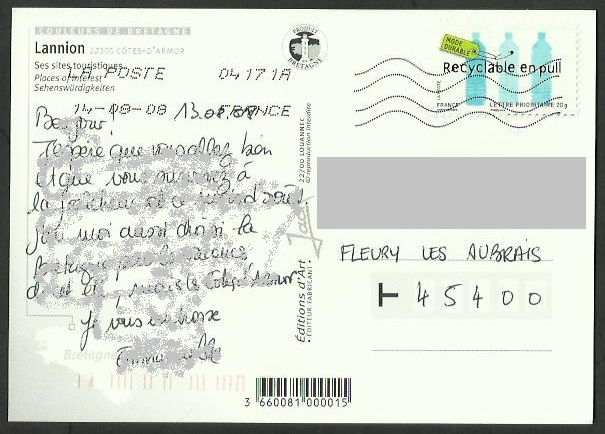 COULEURS DE BRETAGNE
Lannion 22300 CÔTES-D'ARMOR
Ses sites touristiques
Places of interest
Sehenswürdigkeiten
PRODUIT EN BRETAGNE
LA POSTE 04171A
14-08-08 FRANCE
MODE DURABLE
Recyclable en pull
LA POSTE
FRANCE LETTRE PRIORITAIRE 20g
13.08.08
Bonjour!
J'espère que vous allez bien
et que vous survivez à
la
moi aussi choisi la
Bretagne pour les vacances
je vous embrasse
22700 LOUANNEC
© reproduction interdite
Jack
Editions d'Art
• EDITEUR FABRICANT •
FLEURY LES AUBRAIS
T 45400
Bretagne
3 660081 000015